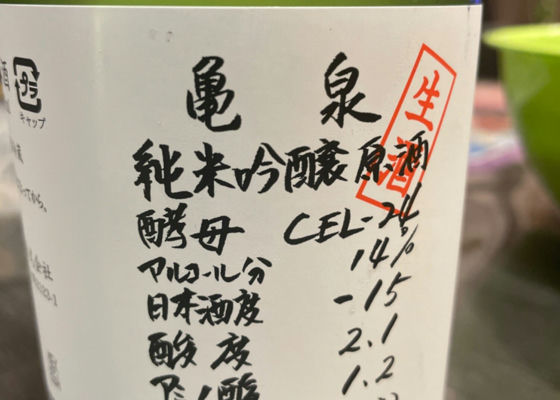 亀泉
生酒
純米吟醸原酒
酵母 CEL-24
アルコール分 14%
日本酒度 -15
酸度 2.1
アミノ酸 1.2
キャップ